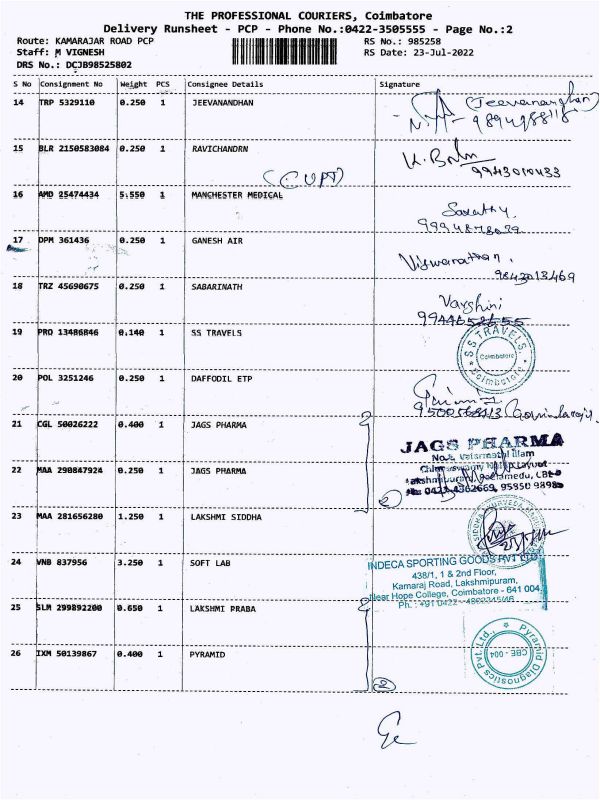 THE PROFESSIONAL COURIERS, Coimbatore
Delivery Runsheet - PCP - Phone No.:0422-3505555 - Page No.:2
Route: KAMARAJAR ROAD PCP RS No.: 985258
Staff: M VIGNESH RS Date: 23-Jul-2022
DRS No.: DCJB98525802
S No Consignment No Weight PCS Consignee Details Signature
14 TRP 5329110 0.250 1 JEEVANANDHAN
(Jeevananghan)
15 BLR 2150583084 0.250 1 RAVICHANDRN
9943010433
16 AMD 25474434 5.550 1 MANCHESTER MEDICAL
17 DPM 361436 0.250 1 GANESH AIR
Viswanathan.
9843013469
18 TRZ 45690675 0.250 1 SABARINATH
Varshini
19 PRO 13486846 0.140 1 SS TRAVELS
S S TRAVELS,
Coimbatore
Coimbatore
20 POL 3251246 0.250 1 DAFFODIL ETP
21 CGL 50026222 0.400 1 JAGS PHARMA
JAGS PHARMA
22 MAA 298847924 0.250 1 JAGS PHARMA
2
23 MAA 281656280 1.250 1 LAKSHMI SIDDHA
24 VNB 837956 3.250 1 SOFT LAB
INDECA SPORTING GOODS PVT LTD.
438/1, 1 & 2nd Floor,
Kamaraj Road, Lakshmipuram,
Near Hope College, Coimbatore - 641 004.
25 SLM 299892200 0.650 1 LAKSHMI PRABA
26 IXM 50139867 0.400 1 PYRAMID
Pyramid Diagnostics Pvt. Ltd.,
CBE - 004
2